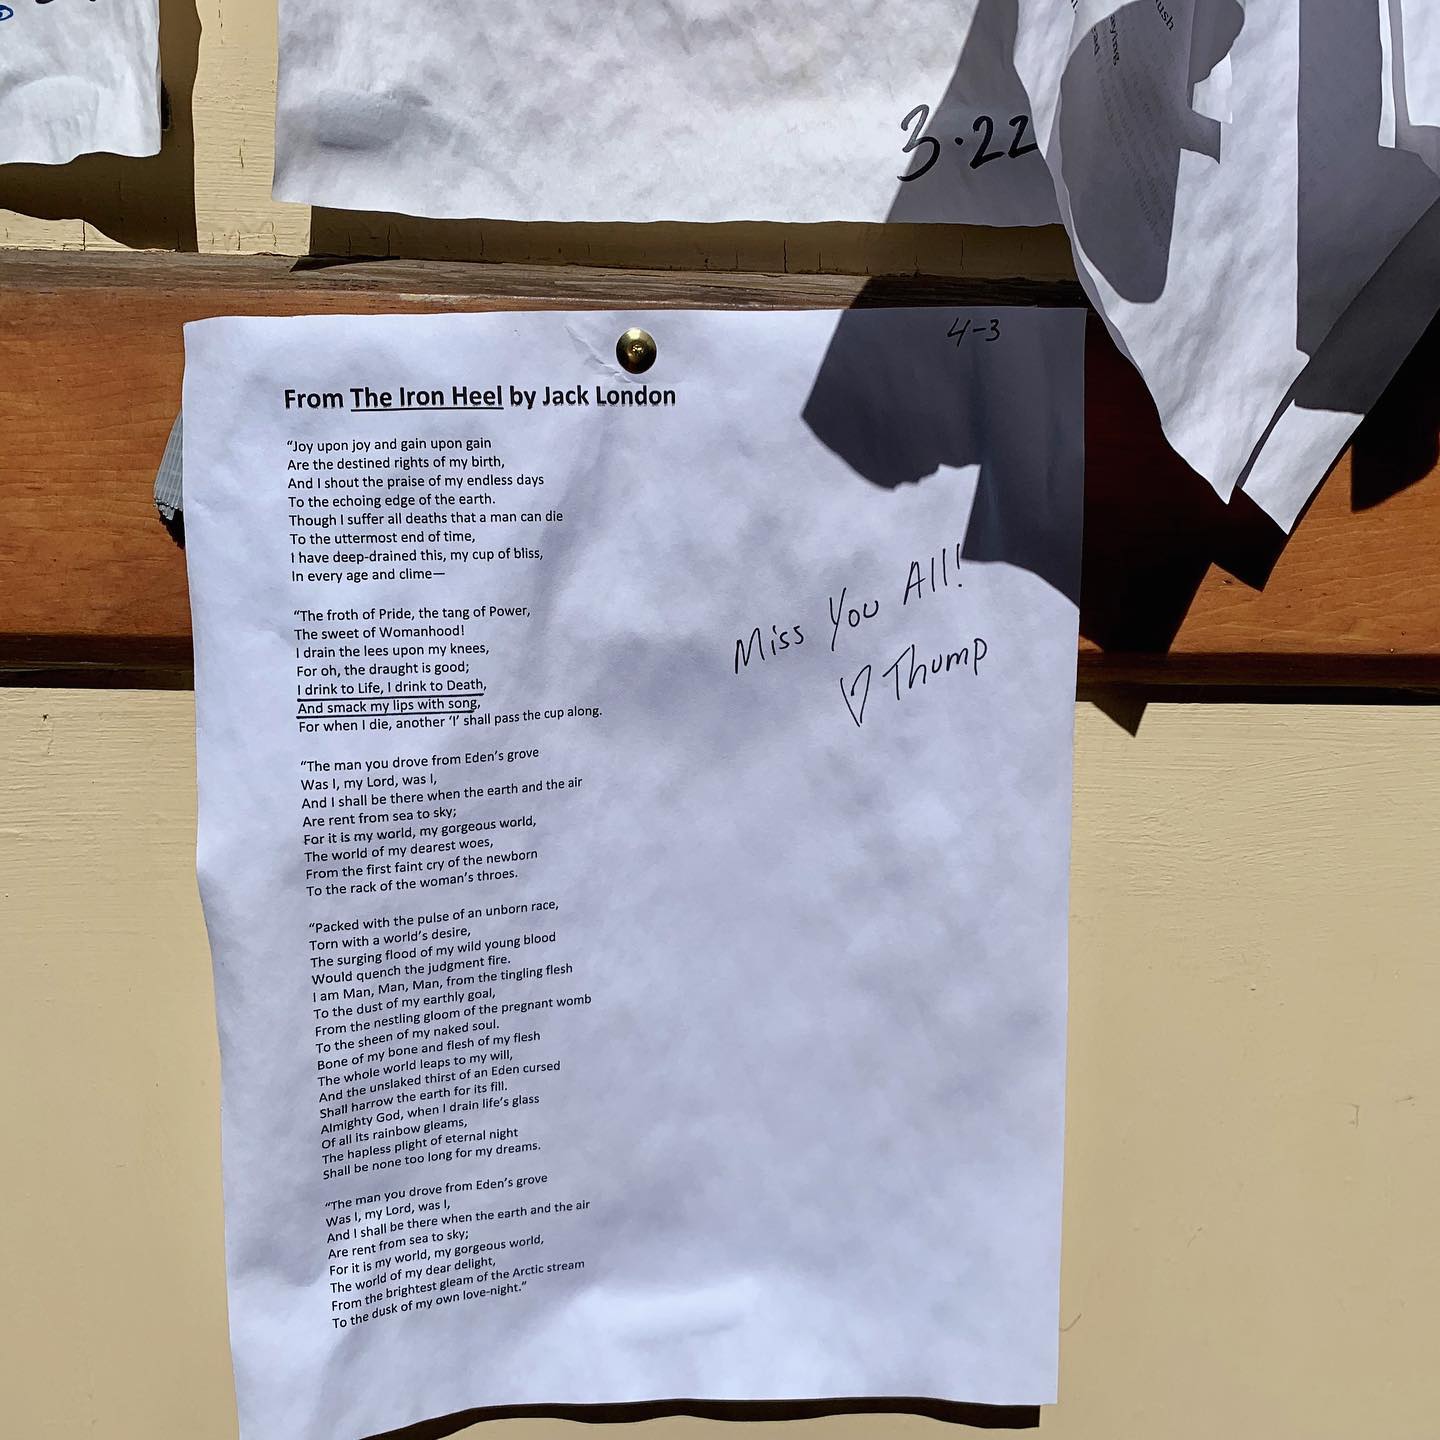 3.22
4-3
From The Iron Heel by Jack London
“Joy upon joy and gain upon gain
Are the destined rights of my birth,
And I shout the praise of my endless days
To the echoing edge of the earth.
Though I suffer all deaths that a man can die
To the uttermost end of time,
I have deep-drained this, my cup of bliss,
In every age and clime—
“The froth of Pride, the tang of Power,
The sweet of Womanhood!
I drain the lees upon my knees,
For oh, the draught is good;
I drink to Life, I drink to Death,
And smack my lips with song,
For when I die, another ‘I’ shall pass the cup along.
“The man you drove from Eden’s grove
Was I, my Lord, was I,
And I shall be there when the earth and the air
Are rent from sea to sky;
For it is my world, my gorgeous world,
The world of my dearest woes,
From the first faint cry of the newborn
To the rack of the woman’s throes.
“Packed with the pulse of an unborn race,
Torn with a world’s desire,
The surging flood of my wild young blood
Would quench the judgment fire.
I am Man, Man, Man, from the tingling flesh
To the dust of my earthly goal,
From the nestling gloom of the pregnant womb
To the sheen of my naked soul.
Bone of my bone and flesh of my flesh
The whole world leaps to my will,
And the unslaked thirst of an Eden cursed
Shall harrow the earth for its fill.
Almighty God, when I drain life’s glass
Of all its rainbow gleams,
The hapless plight of eternal night
Shall be none too long for my dreams.
“The man you drove from Eden’s grove
Was I, my Lord, was I,
And I shall be there when the earth and the air
Are rent from sea to sky;
For it is my world, my gorgeous world,
The world of my dear delight,
From the brightest gleam of the Arctic stream
To the dusk of my own love-night.”
Miss You All!
♡ Thump